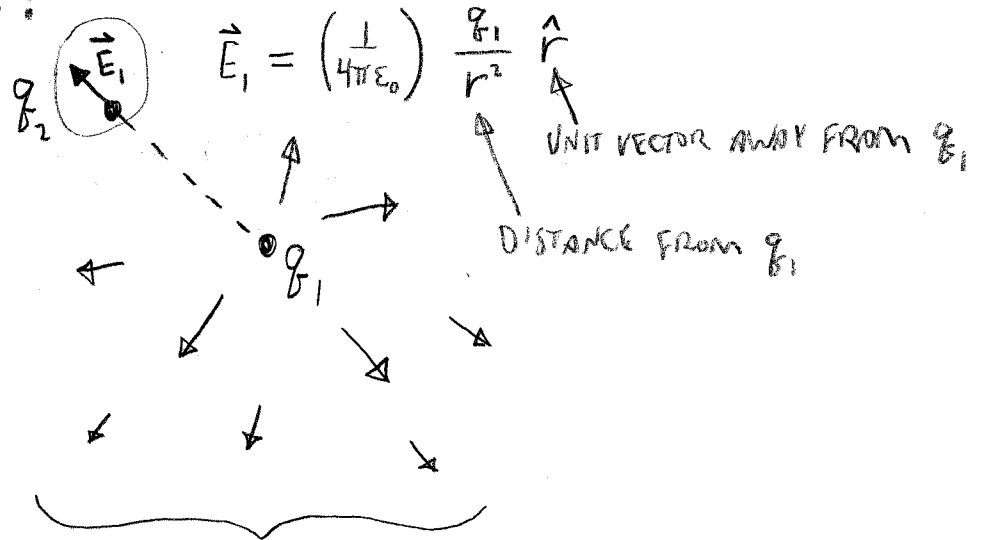 E⃗₁ E⃗₁ = (1/4πε₀) q₁/r² r̂
q₂
UNIT VECTOR AWAY FROM q₁
DISTANCE FROM q₁
q₁